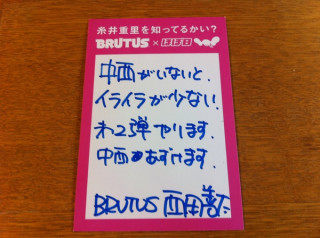 糸井重里を知ってるかい?
BRUTUS×ほぼ日
中西がいないと、
イライラが少ない。
第2弾やります。
中西もあずけます。
BRUTUS 西田善太